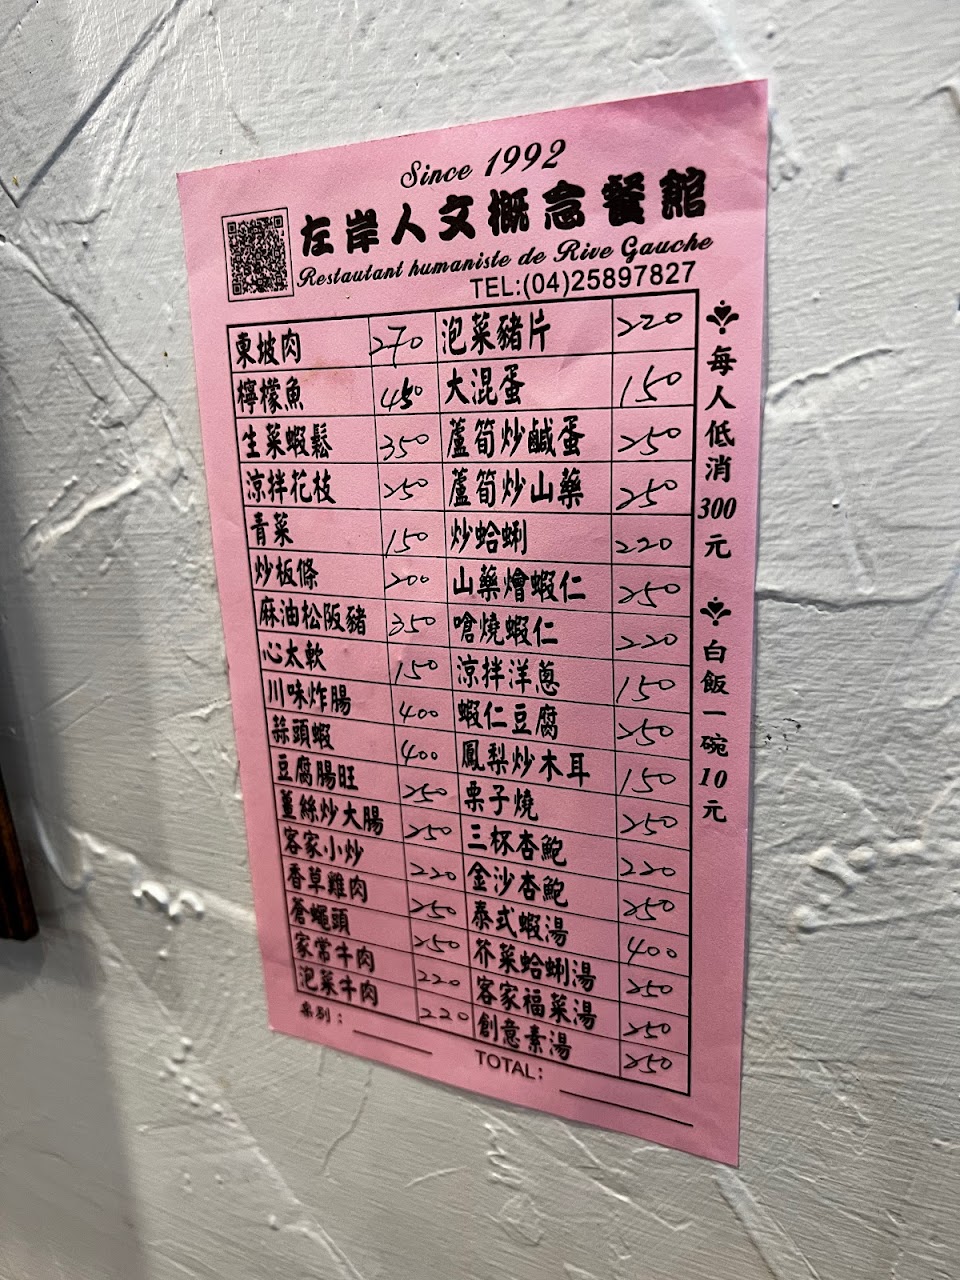 Since 1992
左岸人文概念餐館
Restautant humaniste de Rive Gauche
TEL:(04)25897827
東坡肉 270 泡菜豬片 220
檸檬魚 450 大混蛋 150
生菜蝦鬆 350 蘆筍炒鹹蛋 250
涼拌花枝 250 蘆筍炒山藥 250
青菜 150 炒蛤蜊 220
炒板條 200 山藥燴蝦仁 250
麻油松阪豬 350 嗆燒蝦仁 220
心太軟 150 涼拌洋蔥 150
川味炸腸 400 蝦仁豆腐 250
蒜頭蝦 400 鳳梨炒木耳 150
豆腐腸旺 250 栗子燒 250
薑絲炒大腸 250 三杯杏鮑 220
客家小炒 220 金沙杏鮑 250
香草雞肉 250 泰式蝦湯 400
蒼蠅頭 250 芥菜蛤蜊湯 250
家常牛肉 220 客家福菜湯 250
泡菜牛肉 220 創意素湯 250
桌別：
TOTAL:
每人低消300元
白飯一碗10元